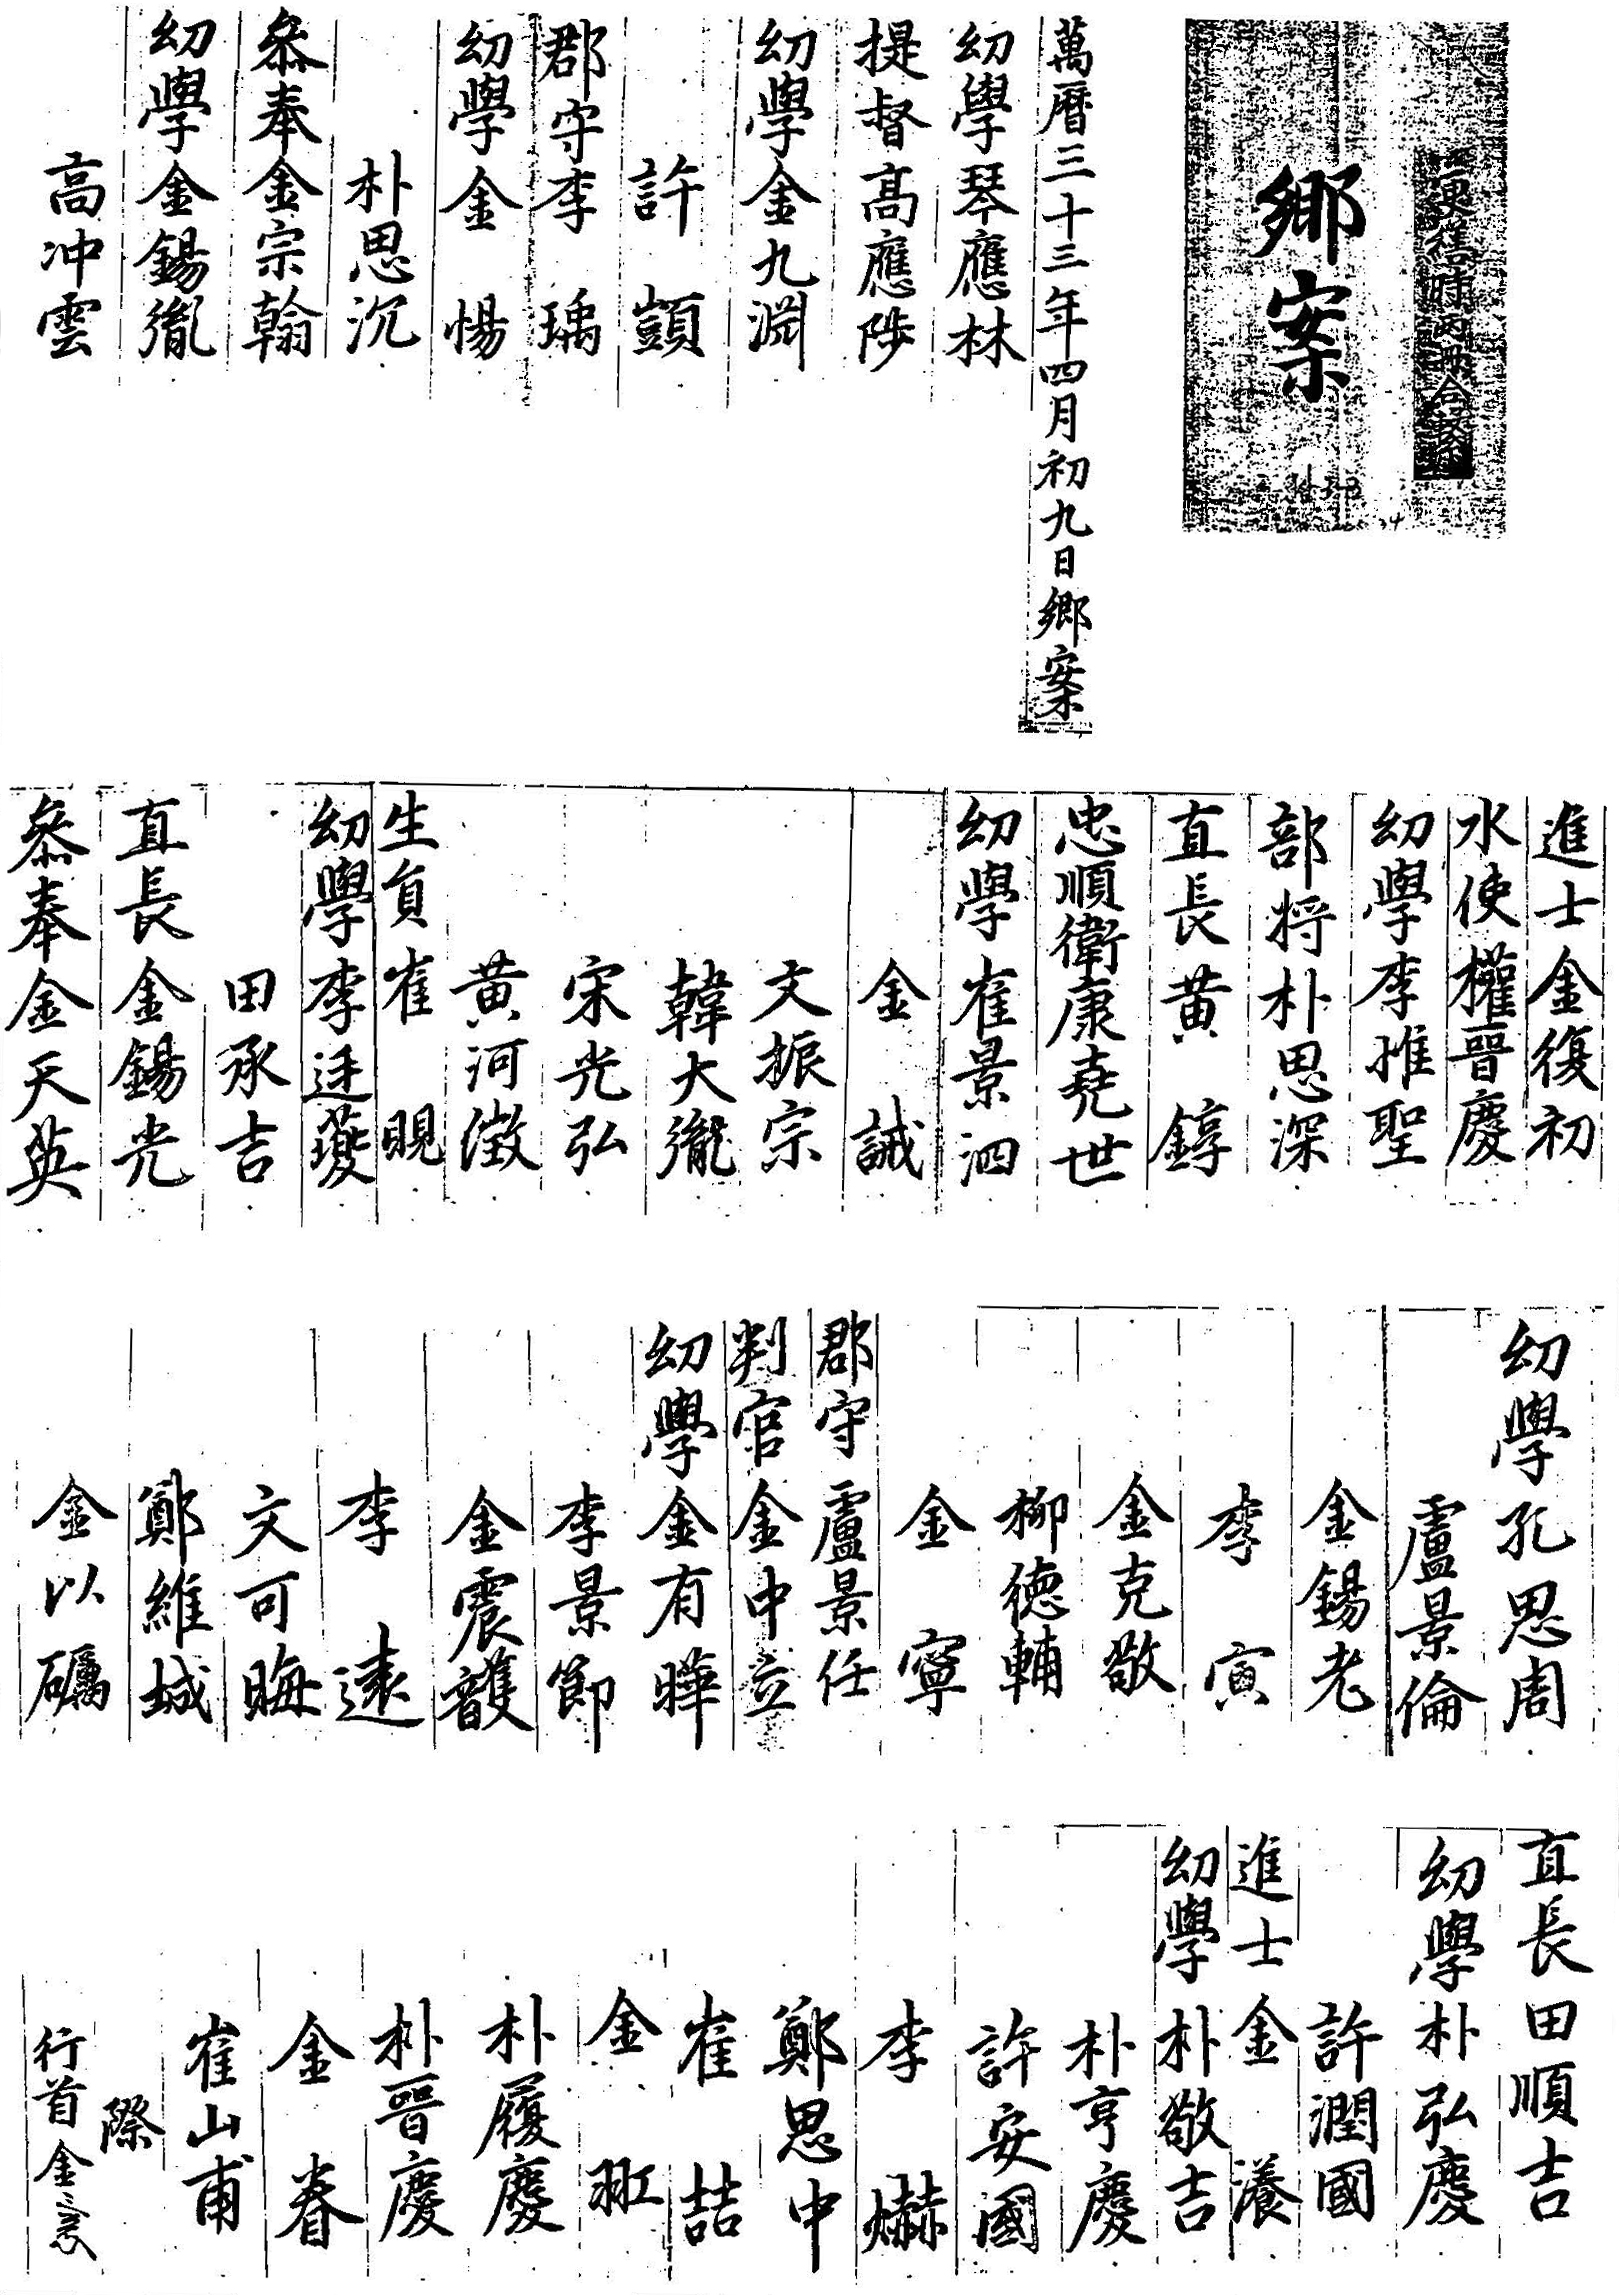 鄉案
萬曆三十三年四月初九日鄉案
幼學琴應林
提督高應陟
幼學金九淵
許顗
郡守李瑀
幼學金惕
朴思沉
叅奉金宗翰
幼學金錫胤
高冲雲
進士金復初
水使權晉慶
幼學李惟聖
部将朴思深
直長黄錞
忠順衛康堯世
幼學崔景泗
金誠
文振宗
韓大胤
宋光弘
黄河澂
生員崔晛
幼學李廷
田承吉
直長金錫光
叅奉金天英
幼學孔思周
盧景倫
金錫老
李寅
金克敬
柳徳輔
金寧
郡守盧景任
判官金中立
幼學金有曄
李景節
金震頀
李遠
文可晦
鄭維城
金以礪
直長田順吉
幼學朴弘慶
許潤國
進士金瀁
幼學朴敬吉
朴亨慶
許安國
李爀
鄭思中
崔喆
金
朴履慶
朴晉慶
金眷
崔山甫
際
行首金